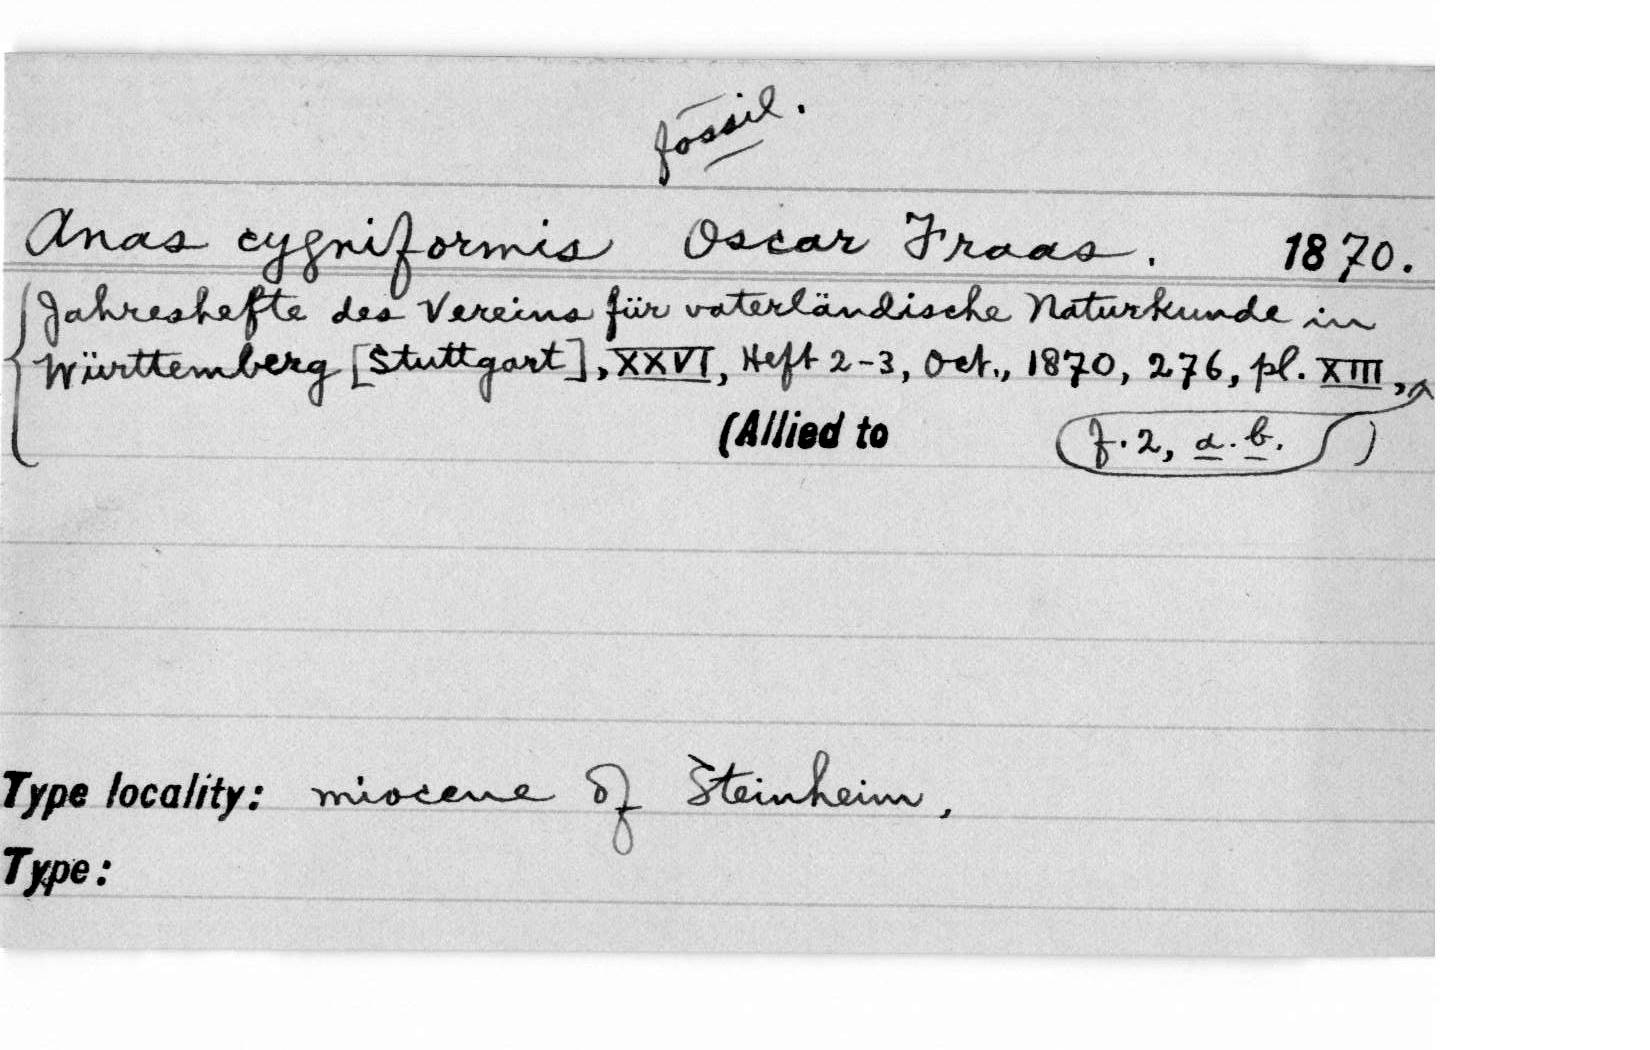 fossil.
Anas cygniformis Oscar Fraas. 1870.
Jahreshefte des Vereins für vaterländische Naturkunde in
Württemberg [Stuttgart], XXVI, Heft 2-3, Oct., 1870, 276, pl. XIII,
(Allied to f. 2, a. b. )
Type locality: miocene of Steinheim,
Type: